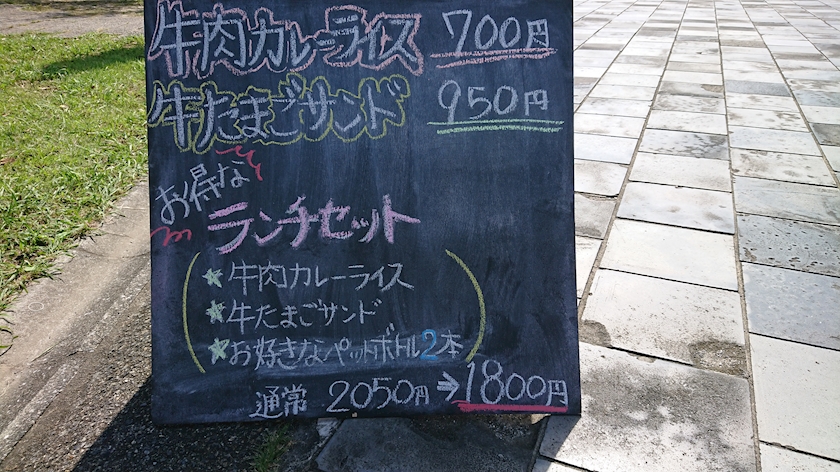 牛肉カレーライス 700円
牛たまごサンド 950円
お得な
ランチセット
★牛肉カレーライス
★牛たまごサンド
★お好きなペットボトル2本
通常 2050円→1800円